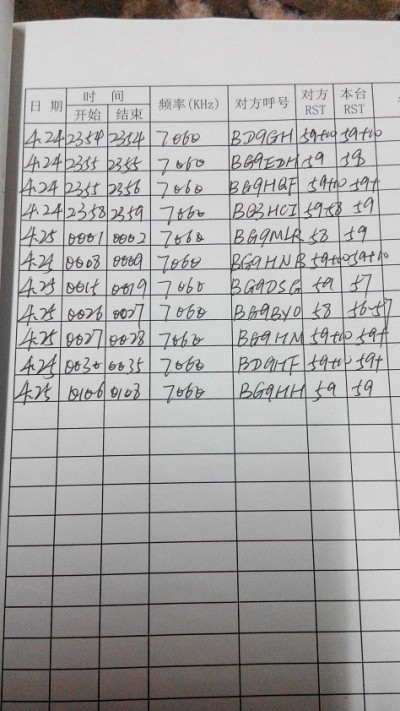 日期 时间 频率(KHz) 对方呼号 对方RST 本台RST
开始 结束
4.24 2354 2354 7060 BD9GH 59+10 59+10
4.24 2355 2355 7060 BG9EDH 59 58
4.24 2355 2356 7060 BG9HQF 59+10 59+
4.24 2358 2359 7060 BG3HCI 59+58 59
4.25 0001 0002 7060 BG9MLR 58 59
4.25 0008 0009 7060 BG9HNB 59+10 59+10
4.25 0015 0019 7060 BG9DSG 59 57
4.25 0026 0027 7060 BG9BYO 58 56-57
4.25 0027 0028 7060 BG9HM 59+10 59+
4.25 0030 0035 7060 BD9HF 59+10 59+
4.25 0106 0108 7060 BG9HH 59 59